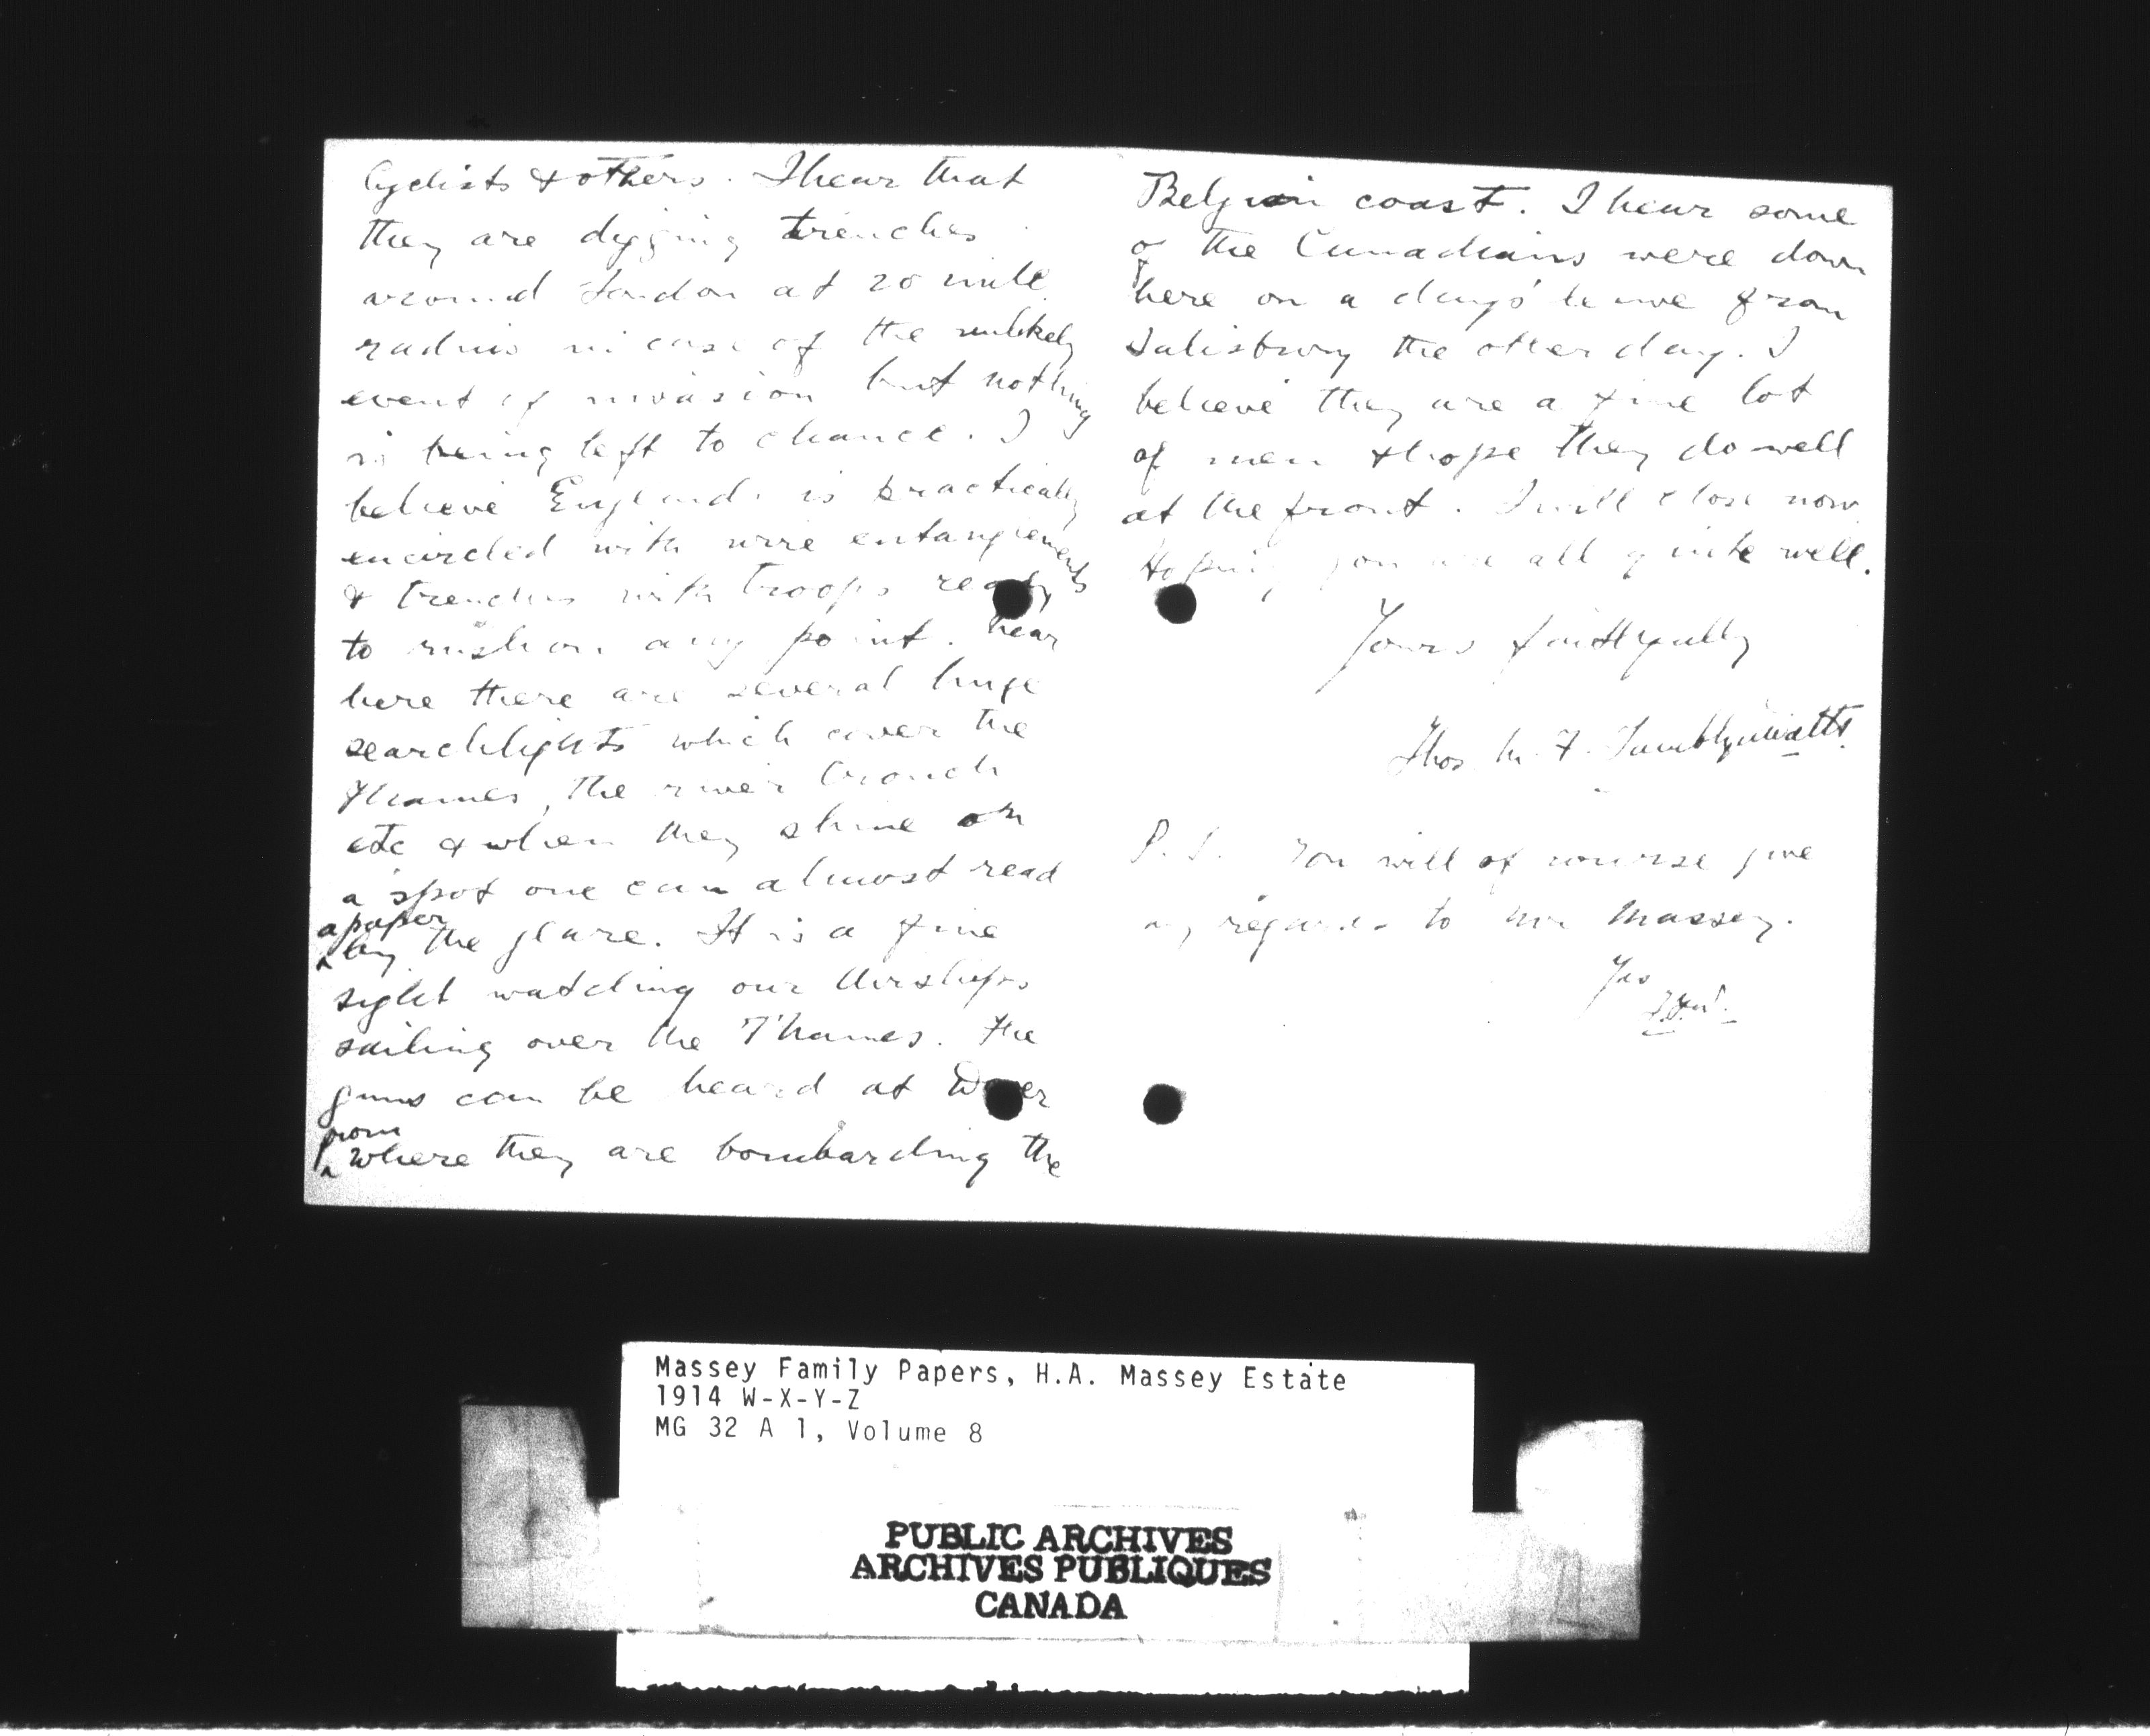 Cyclists & others. I hear that
they are digging trenches
around London at 20 mile
radius in case of the unlikely
event of invasion but nothing
is being left to chance. I
believe England is practically
encircled with wire entanglements
& trenches with troops ready
to rush on any point. Near
here there are several huge
searchlights which cover the
Thames, the river Crouch
etc & when they shine on
a spot one can almost read
a paper
by the glare. It is a fine
sight watching our Airships
sailing over the Thames. The
guns can be heard at Dover
from
where they are bombarding the
Belgian coast. I hear some
of the Canadians were down
here on a days' leave from
Salisbury the other day. I
believe they are a fine lot
of men & hope they do well
at the front. I will close now
Hoping you are all quite well.
Yours faithfully
Thos. M. F. Tamblynwatts
P.S. You will of course give
my regards to Mr Massey.
Yrs
Massey Family Papers, H.A. Massey Estate
1914 W-X-Y-Z
MG 32 A 1, Volume 8
PUBLIC ARCHIVES
ARCHIVES PUBLIQUES
CANADA